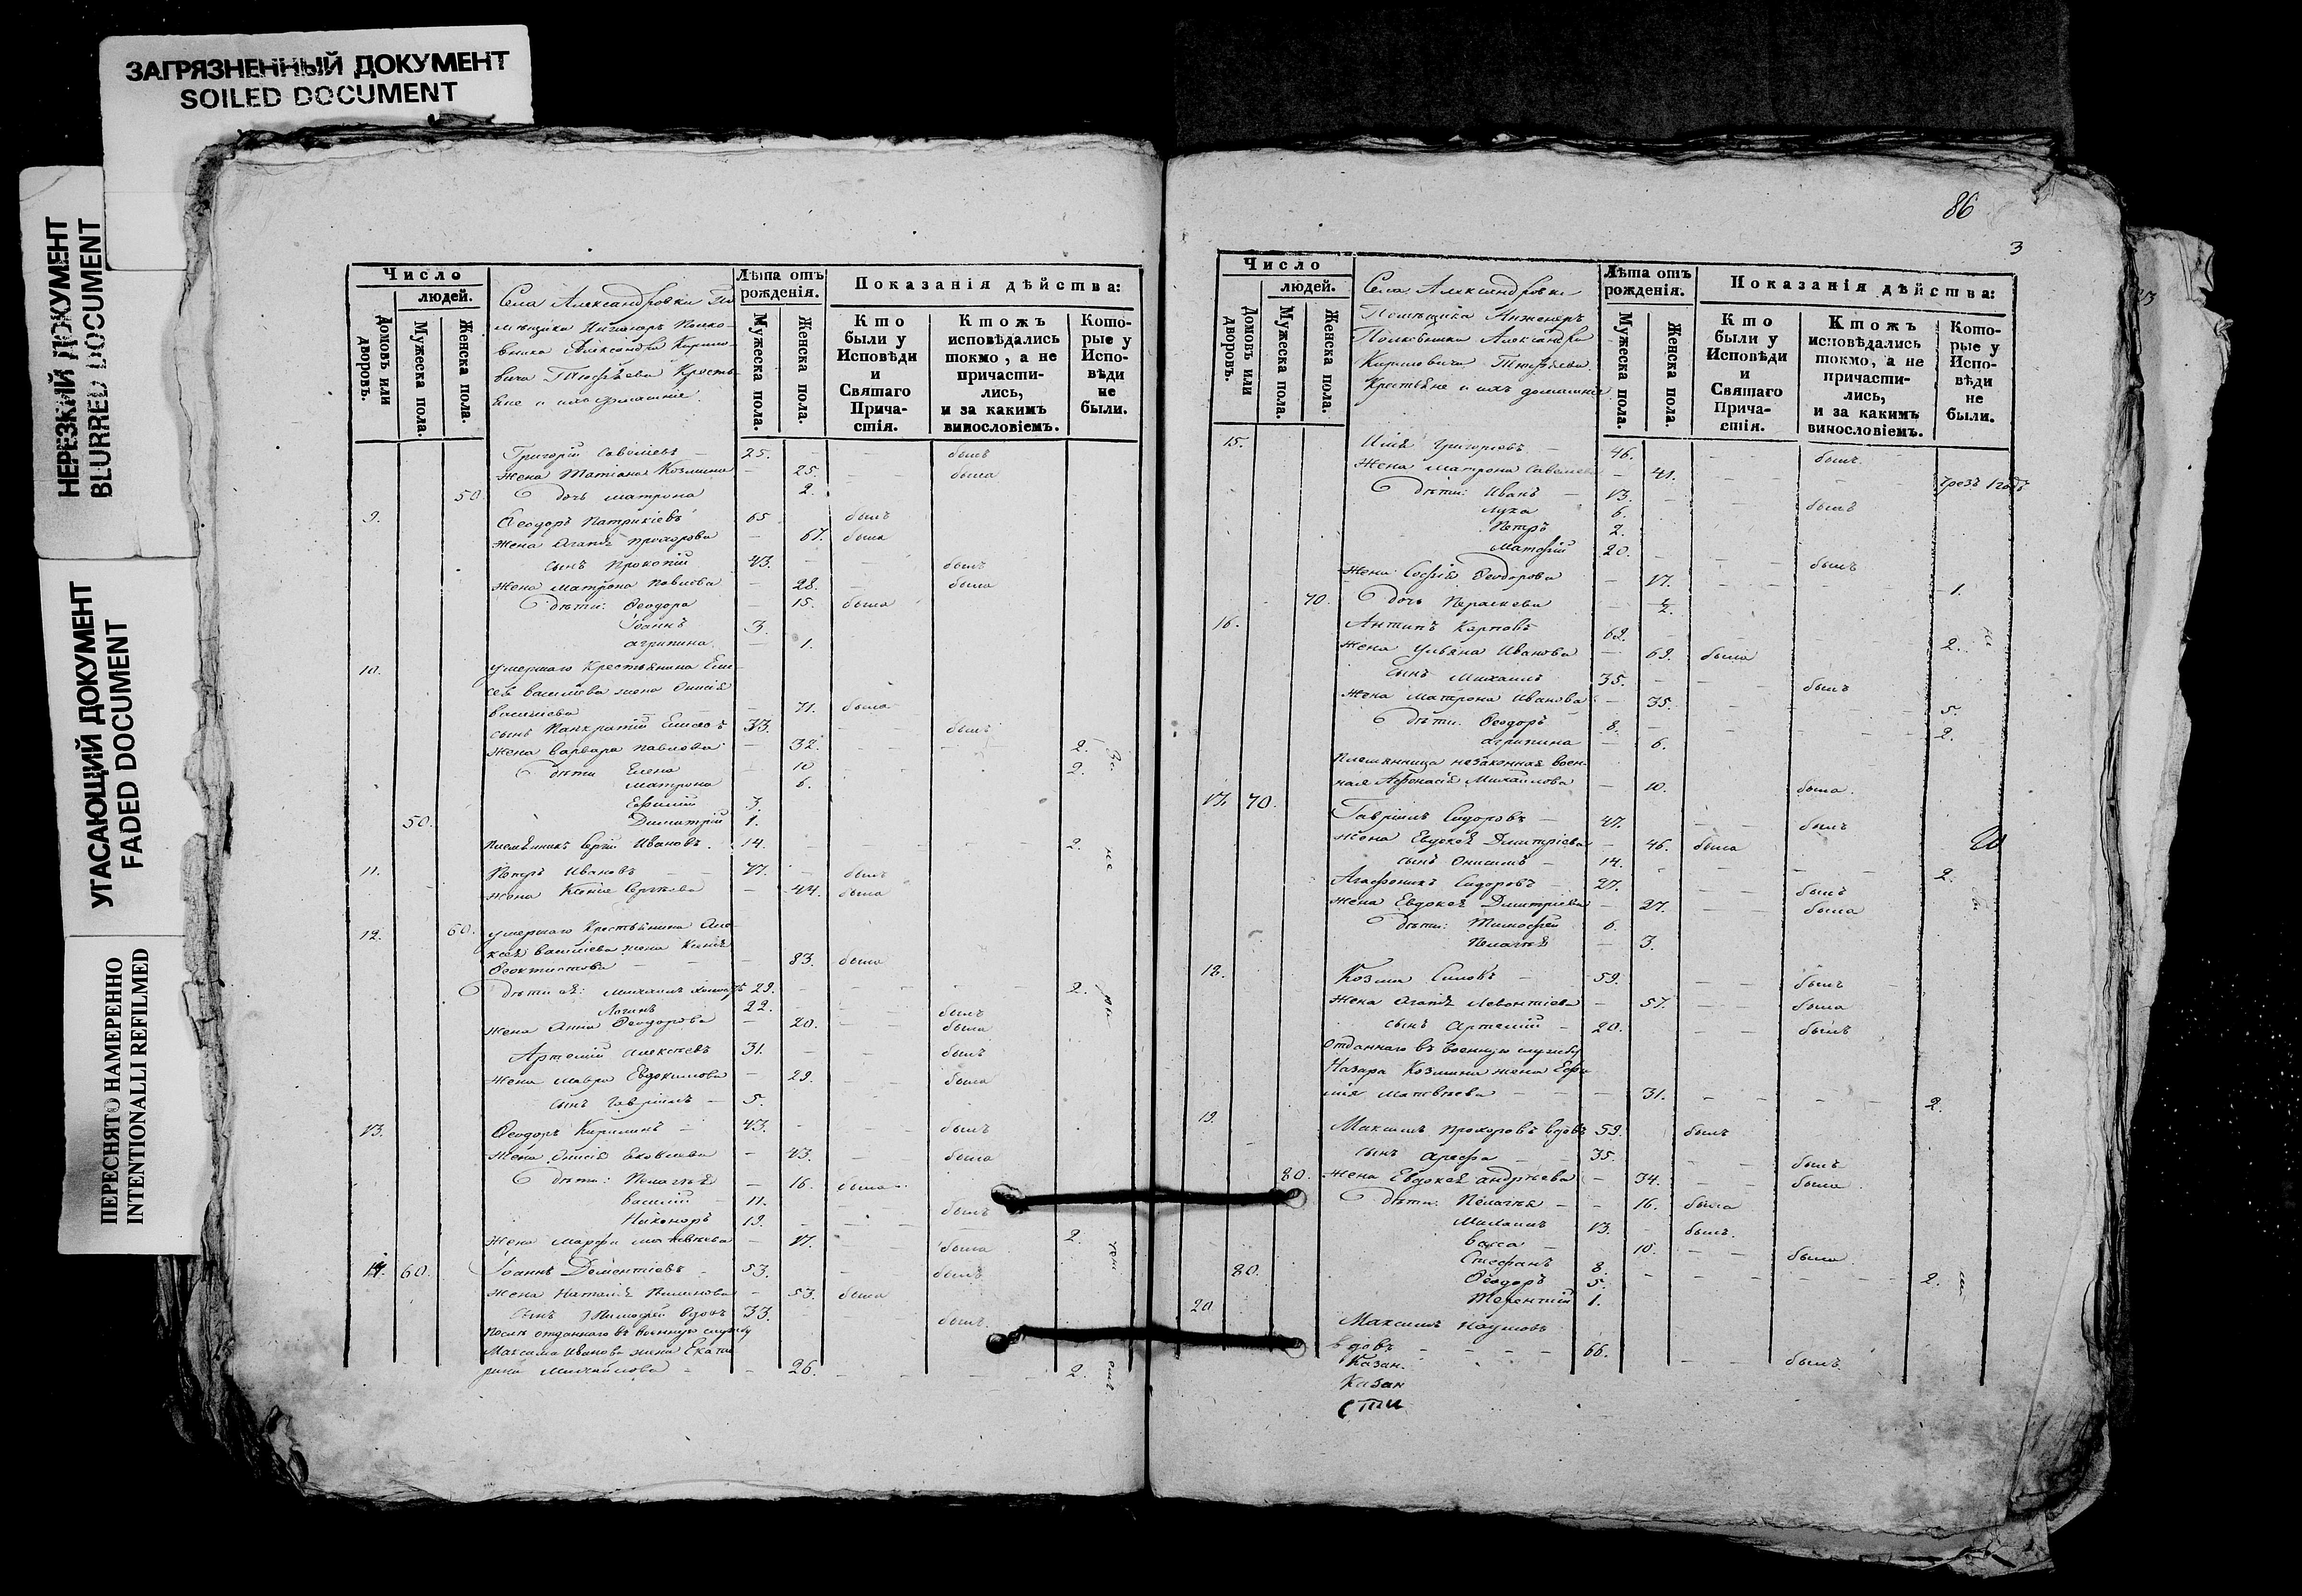 ЗАГРЯЗНЕННЫЙ ДОКУМЕНТ
SOILED DOCUMENT
НЕРЕЗКИЙ ДОКУМЕНТ
BLURRED DOCUMENT
УГАСАЮЩИЙ ДОКУМЕНТ
FADED DOCUMENT
ПЕРЕСНЯТО НАМЕРЕННО
INTENTIONALLI REFILMED
Число
людей.
Домовъ или дворовъ.
Мужеска пола.
Женска пола.
Села Александровки По
мѣщика Инженеръ Полко-
вника Александра Кирило-
вича Крестья
не и ихъ домашніе
Лѣта отъ рожденія.
Мужеска пола.
Женска пола.
Показанія дѣйства:
Кто были у Исповѣди и Святаго Причастія.
Ктожъ исповѣдались токмо, а не причастились, и за какимъ винословіемъ.
Которые у Исповѣди не были.
Григорій Савельевъ 25. былъ
жена Татіана Козмина 25. была
50 дочь Матрона 2.
9. Ѳеодоръ Патрикіевъ 65 былъ
жена Агапія Прохорова 67. была
сынъ Прокопій 43. былъ
жена Матрона Павлова 28. была
дѣти: Ѳеодора 15. была
Іоаннъ 3.
Агрипина 1.
10. умершаго Крестьянина Ели
сея Василіева жена Онисія
Василіева 71. была
сынъ Панкратій 33. былъ
жена Варвара Павлова 32. 2.
дѣти Елена 10 2.
Матрона 6.
Евѳимій 3.
50. Димитрій 1.
племянникъ Сергій Ивановъ. 14. 2.
11. Петръ Ивановъ 47. былъ
жена Ксенія Сергѣева 44. была
12. 60. умершаго Крестьянина Але
ксея Василіева жена Ксенія
Ѳеоктистова 83. была
дѣти ея: Михаилъ 29. 2.
Логинъ 22. былъ
жена Анна Ѳеодорова 20. была
Артемій Алексѣевъ 31. былъ
жена Мавра Евдокимова 29. была
сынъ Гавріилъ 5.
13. Ѳеодоръ Кирилинъ 43. былъ
жена Онисія Яковлева 43. была
дѣти: Пелагея 16. была
Василій 11. былъ
Никоноръ 19.
жена Марфа Матвѣева 17. была 2.
14. 60. Іоаннъ Дементіевъ 53. былъ
жена Наталія 53. была
сынъ Тимоѳей вдовъ 33. былъ.
послѣ отданнаго въ военную службу
Максима Иванова жена Екате
рина Михайлова 26. 2.
86
3
Число
людей.
Домовъ или дворовъ.
Мужеска пола.
Женска пола.
Села Александровки
Помѣщика Инженеръ
Полковника Александра
Кириловича
Крестьяне и ихъ домашніе
Лѣта отъ рожденія.
Мужеска пола.
Женска пола.
Показанія дѣйства:
Кто были у Исповѣди и Святаго Причастія.
Ктожъ исповѣдались токмо, а не причастились, и за какимъ винословіемъ.
Которые у Исповѣди не были.
15. Илья Григорьевъ 46. былъ.
жена Матрона Савельева 41. чрезъ 1 годъ
дѣти: Иванъ 13. былъ
Лука 6.
Петръ 2.
20. былъ
жена Софія Ѳеодорова 17. 1.
70. дочь Параскева
16. Антипъ Карповъ 62. 2.
жена Ульяна Иванова 69. была
сынъ Михаилъ 35. былъ
жена Матрона Иванова 35. 5.
дѣти: Ѳеодоръ 8. 2.
Агрипина 6.
племянница незаконная воен
ная Аѳонасія Михайлова 10. была.
17. 70. Гавріилъ Сидоровъ 47. былъ
жена Евдокея Дмитріева 46. была
сынъ Онисимъ 14. 2.
Агаѳоникъ Сидоровъ 27. былъ
жена Евдокея Дмитріева 27. была
дѣти: Тимоѳей 6.
Пелагея 3.
18. Козма 59. былъ
жена Агапія Левонтіева 57. была
сынъ Артемій 20. былъ
отданнаго въ военную службу
Назара Козмина жена Евфи
мія Матвѣева 31. 2.
19. Максимъ Прохоровъ вдовъ 59. былъ
сынъ Арефа 35. былъ
80. жена Евдокея Андрѣева 34. была
дѣти: Пелагея 16. была
13. былъ.
Васса 10. была
Стефанъ 8. 2.
80. Ѳеодоръ 5.
Терентій 1.
20 Максимъ Наумовъ
вдовъ 66. былъ.
Казан.
Казан
сти